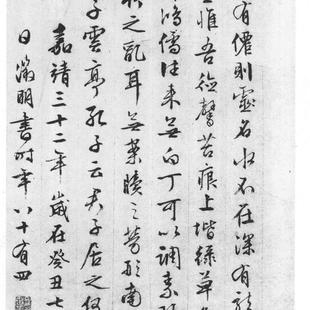 有僊則靈名水不在深有龍
惟吾德馨苔痕上堦綠草
鴻儒往來無白丁可以調素
之亂耳無案牘之勞形南
子雲亭孔子云君子居之何
嘉靖三十二年歲在癸丑七
日徵明書時年八十有四